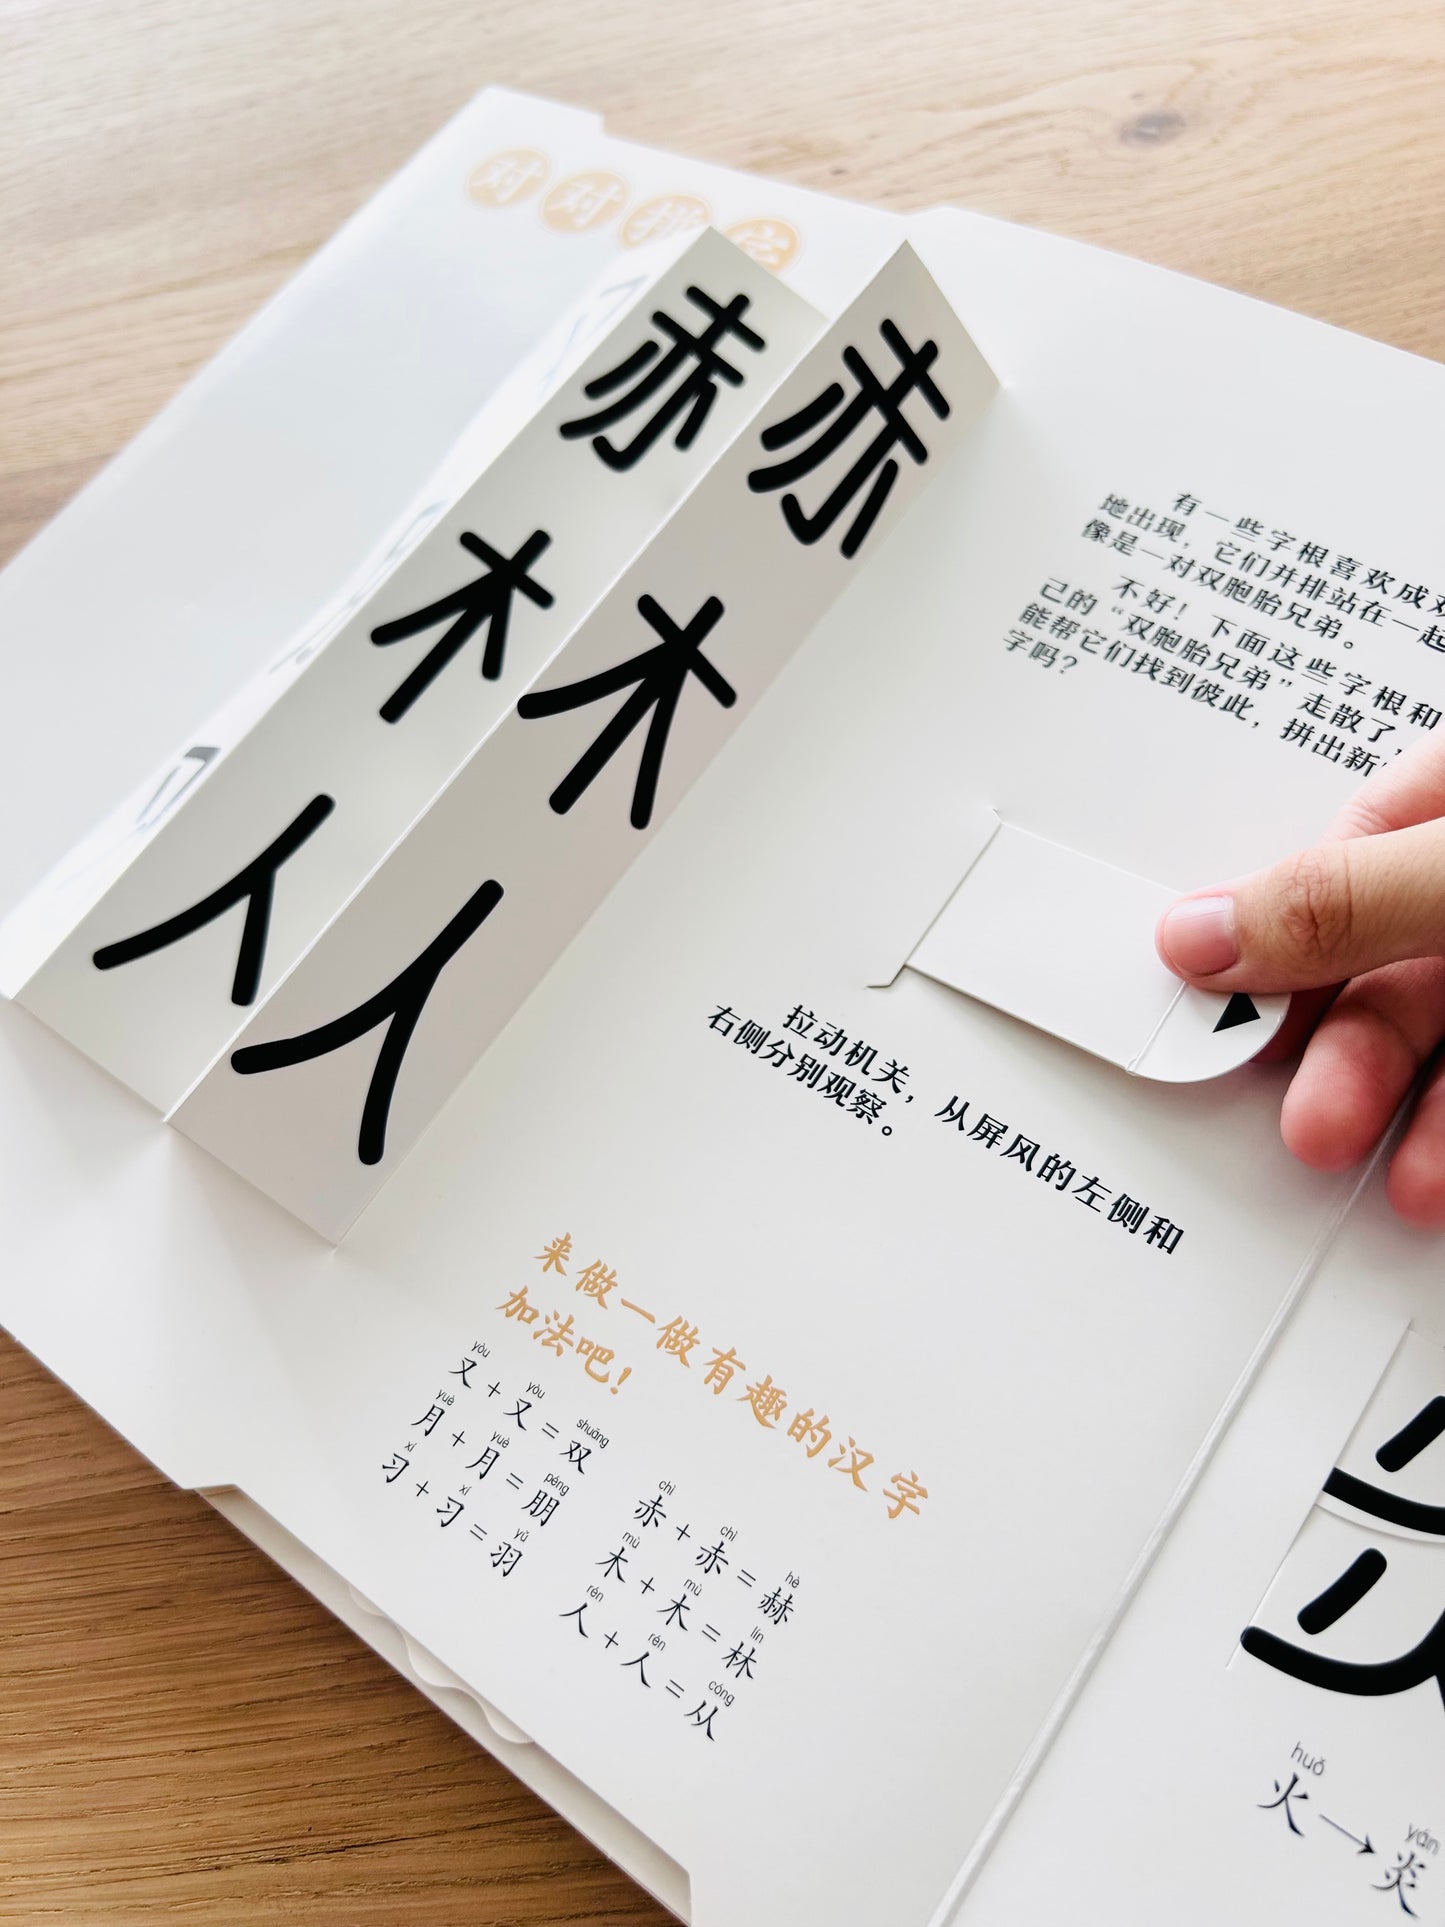 对对排字
赤 赤
木 木
人 人
有一些字根喜欢成
地出现，它们并排站在一起
像是一对双胞胎兄弟。
不好！下面这些字根和
己的“双胞胎兄弟”走散了，
能帮它们找到彼此，拼出新
字吗？
拉动机关，从屏风的左侧和
右侧分别观察。
来做一做有趣的汉字
加法吧！
yòu yòu shuāng
又＋又＝双
yuè yuè péng
月＋月＝朋
xí xí yǔ
习＋习＝羽
chì chì hè
赤＋赤＝赫
mù mù lín
木＋木＝林
rén rén cóng
人＋人＝从
huǒ yán
火→炎